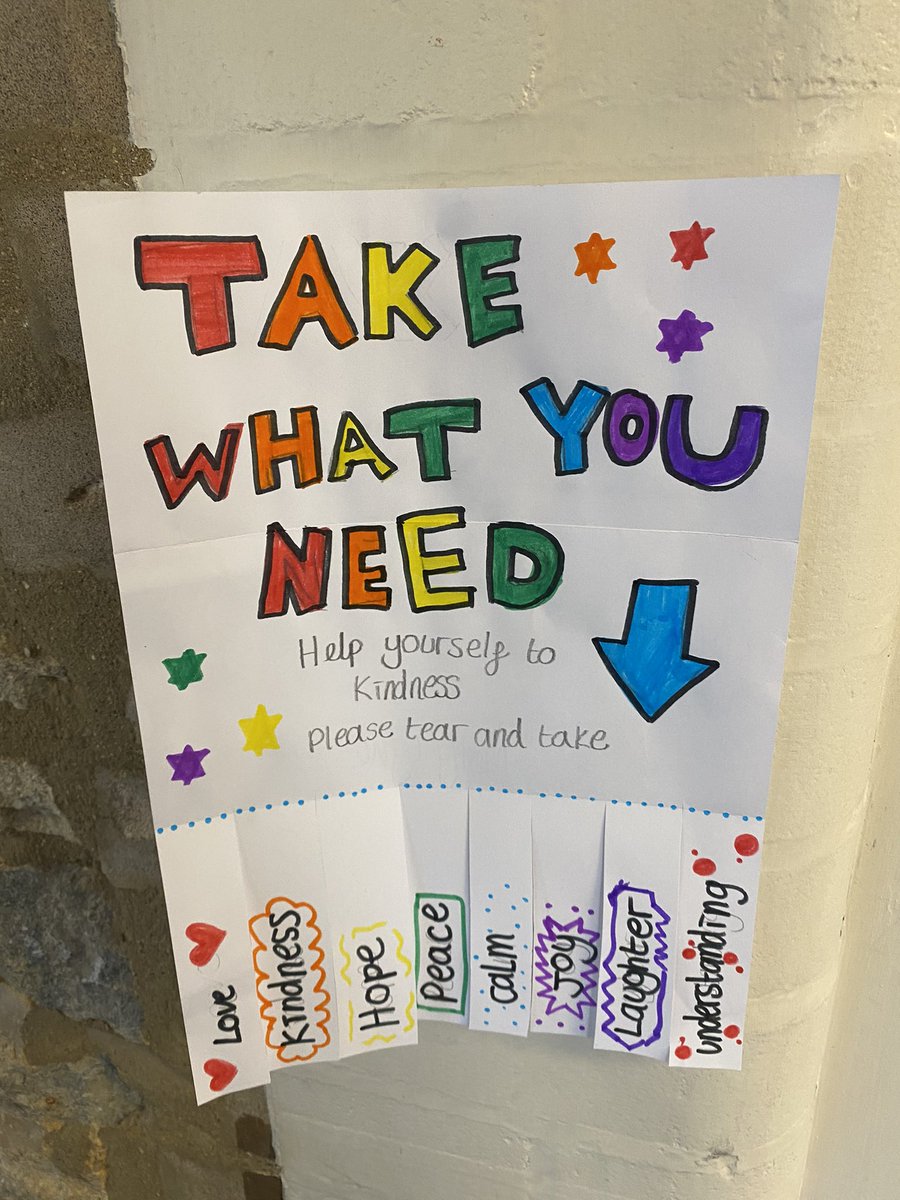 TAKE
WHAT YOU
NEED
Help yourself to
Kindness
please tear and take
Love
Kindness
Hope
Peace
calm
Joy
Laughter
understanding